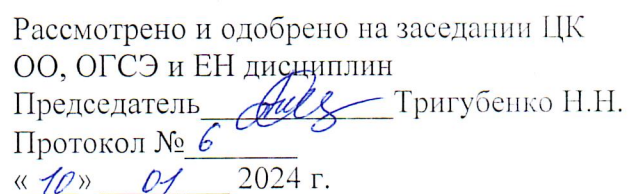 Рассмотрено и одобрено на заседании ЦК
ОО, ОГСЭ и ЕН дисциплин
Председатель Тригубенко Н.Н.
Протокол № 6
« 10 » 01 2024 г.